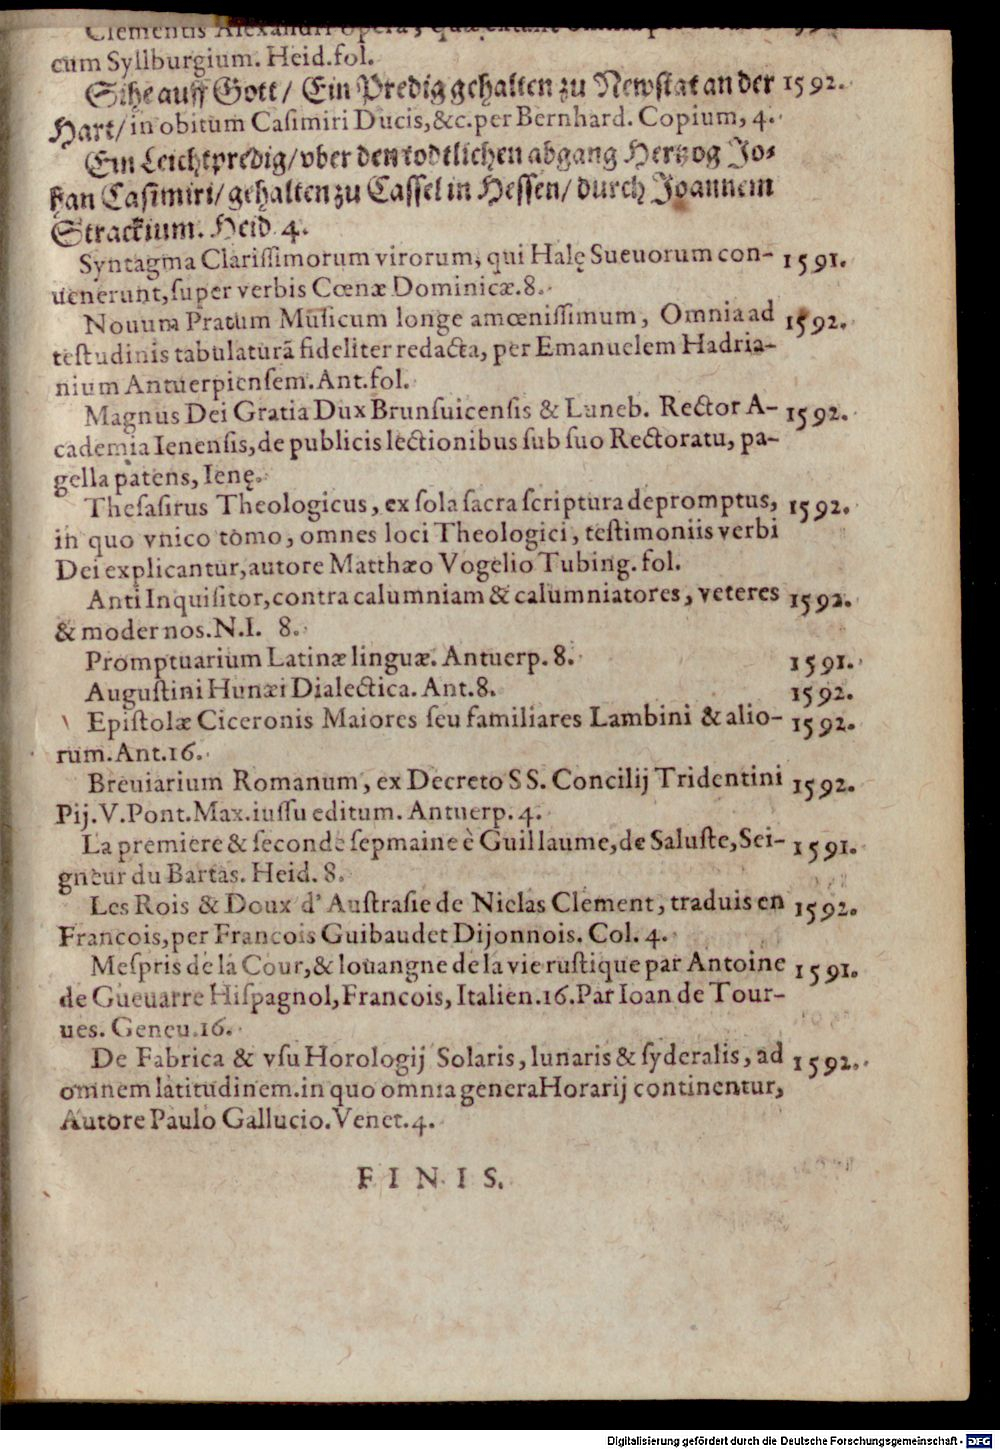 Clementis Alexandri opera,
cum Syllburgium. Heid.fol.
Sihe auff Gott/ Ein Predig gehalten zu Newstat an der 1592.
Hart/ in obitum Casimiri Ducis,&c.per Bernhard. Copium, 4.
Ein Leichtpredig/vber den todtlichen abgang Hertzog Jo-
han Casimiri/gehalten zu Cassel in Hessen/ durch Joannem
Strackium. Heid. 4.
Syntagma Clarissimorum virorum, qui Halę Sueuorum con- 1591.
uenerunt,super verbis Cœnæ Dominicæ.8.
Nouum Pratum Musicum longe amœnissimum, Omnia ad 1592.
testudinis tabulaturã fideliter redacta, per Emanuelem Hadria-
nium Antuerpiensem.Ant.fol.
Magnus Dei Gratia Dux Brunsuicensis & Luneb. Rector A- 1592.
cademia Ienensis,de publicis lectionibus sub suo Rectoratu, pa-
gella patens, Ienę.
Thesasirus Theologicus, ex sola sacra scriptura depromptus, 1592.
in quo vnico tomo, omnes loci Theologici, testimoniis verbi
Dei explicantur,autore Matthæo Vogelio Tubing. fol.
Anti Inquisitor,contra calumniam & calumniatores, veteres 1592.
& modernos.N.I. 8.
Promptuarium Latinæ linguæ. Antuerp. 8. 1591.
Augustini Hunæi Dialectica. Ant.8. 1592.
Epistolæ Ciceronis Maiores seu familiares Lambini & alio- 1592.
rum.Ant.16.
Breuiarium Romanum, ex Decreto SS. Concilij Tridentini 1592.
Pij.V.Pont.Max.iussu editum. Antuerp. 4.
La premiere & seconde sepmaine è Guillaume,de Saluste,Sei- 1591.
gneur du Bartas. Heid. 8.
Les Rois & Doux d' Austrasie de Niclas Clement, traduis en 1592.
Francois,per Francois Guibaudet Dijonnois. Col. 4.
Mespris de la Cour,& louangne de la vie rustique par Antoine 1591.
de Gueuarre Hispagnol,Francois, Italien.16.Par Ioan de Tour-
ues. Geneu.16.
De Fabrica & vsu Horologij Solaris, lunaris & syderalis, ad 1592.
omnem latitudinem.in quo omnia genera Horarij continentur,
Autore Paulo Gallucio.Venet.4.
FINIS.
Digitalisierung gefördert durch die Deutsche Forschungsgemeinschaft - DFG